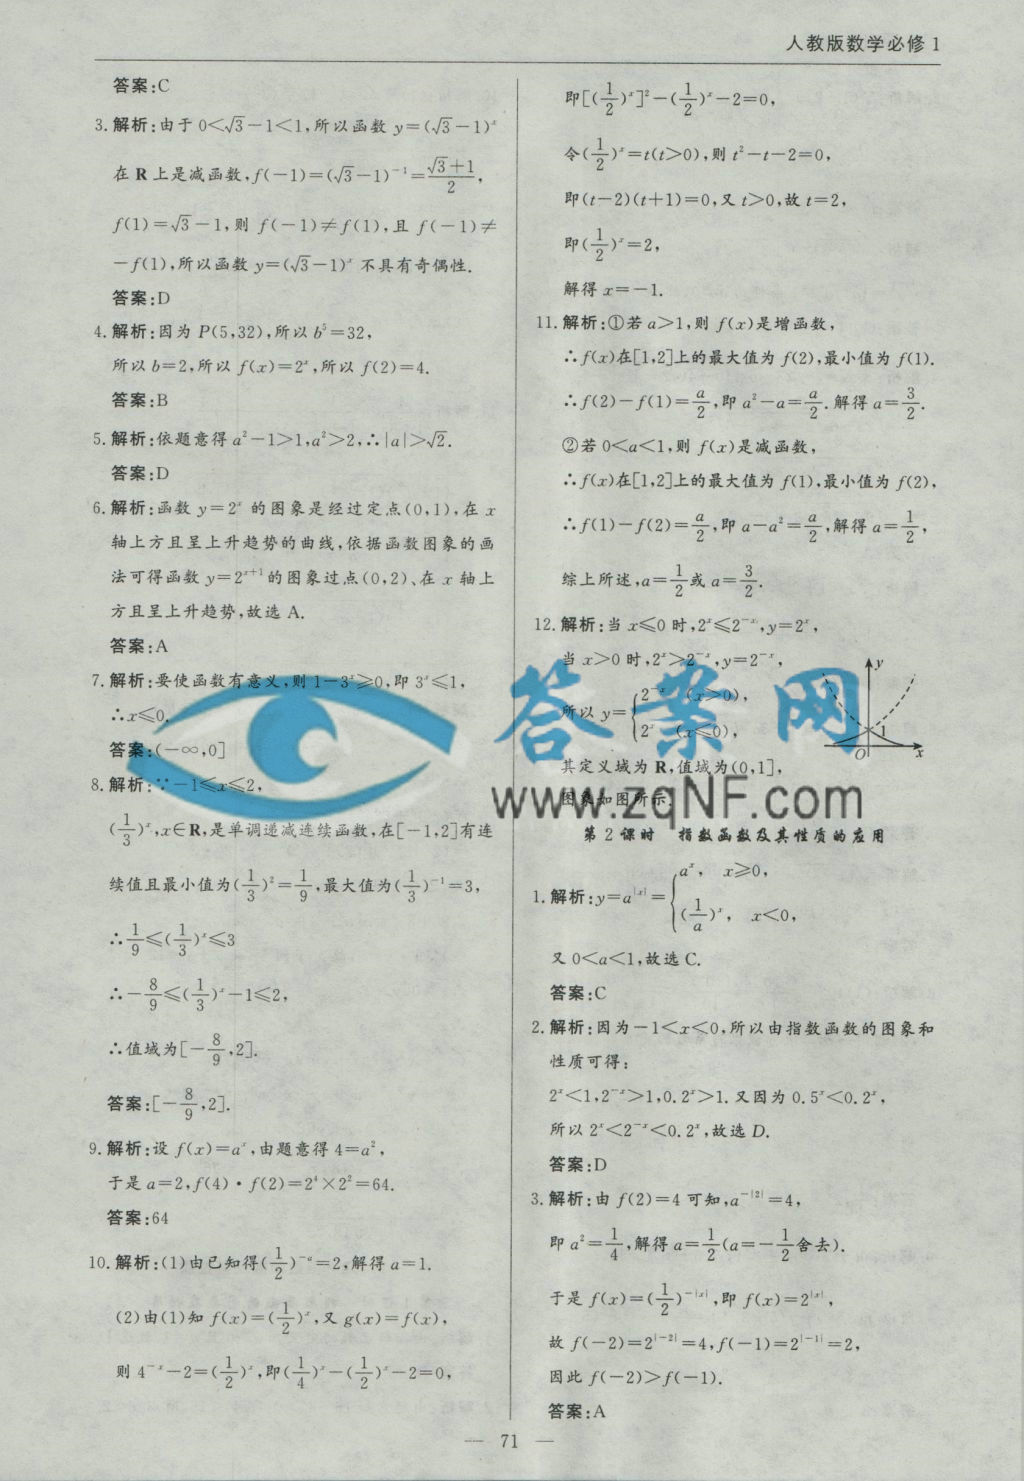 人教版数学必修1
答案:C
3.解析:由于0<√3-1<1,所以函数y=(√3-1)^x
在R上是减函数,f(-1)=(√3-1)^{-1}=(√3+1)/2,
f(1)=√3-1,则f(-1)≠f(1),且f(-1)≠
-f(1),所以函数y=(√3-1)^x不具有奇偶性.
答案:D
4.解析:因为P(5,32),所以b^5=32,
所以b=2,所以f(x)=2^x,所以f(2)=4.
答案:B
5.解析:依题意得a^2-1>1,a^2>2,∴|a|>√2.
答案:D
6.解析:函数y=2^x的图象是经过定点(0,1),在x
轴上方且呈上升趋势的曲线,依据函数图象的画
法可得函数y=2^{x+1}的图象过点(0,2)、在x轴上
方且呈上升趋势,故选A.
答案:A
7.解析:要使函数有意义,则1-3^x≥0,即3^x≤1,
∴x≤0.
答案:(-∞,0]
8.解析:∵-1≤x≤2,
(1/3)^x,x∈R,是单调递减连续函数,在[-1,2]有连
续值且最小值为(1/3)^2=1/9,最大值为(1/3)^{-1}=3,
∴1/9≤(1/3)^x≤3
∴-8/9≤(1/3)^x-1≤2,
∴值域为[-8/9,2].
答案:[-8/9,2].
9.解析:设f(x)=a^x,由题意得4=a^2,
于是a=2,f(4)·f(2)=2^4×2^2=64.
答案:64
10.解析:(1)由已知得(1/2)^{-a}=2,解得a=1.
(2)由(1)知f(x)=(1/2)^x,又g(x)=f(x),
则4^{-x}-2=(1/2)^x,即(1/4)^x-(1/2)^x-2=0,
即[(1/2)^x]^2-(1/2)^x-2=0,
令(1/2)^x=t(t>0),则t^2-t-2=0,
即(t-2)(t+1)=0,又t>0,故t=2,
即(1/2)^x=2,
解得x=-1.
11.解析:①若a>1,则f(x)是增函数,
∴f(x)在[1,2]上的最大值为f(2),最小值为f(1).
∴f(2)-f(1)=a/2,即a^2-a=a/2.解得a=3/2.
②若0<a<1,则f(x)是减函数,
∴f(x)在[1,2]上的最大值为f(1),最小值为f(2),
∴f(1)-f(2)=a/2,即a-a^2=a/2,解得a=1/2,
综上所述,a=1/2或a=3/2.
12.解析:当x≤0时,2^x≤2^{-x},y=2^x,
当x>0时,2^x>2^{-x},y=2^{-x},
所以y={2^{-x} (x>0),
2^x (x≤0),
其定义域为R,值域为(0,1],
图象如图所示.
y
1
O
x
答案网
www.zqNF.com
第2课时 指数函数及其性质的应用
1.解析:y=a^{|x|}={a^x, x≥0,
(1/a)^x, x<0,
又0<a<1,故选C.
答案:C
2.解析:因为-1<x≤0,所以由指数函数的图象和
性质可得:
2^x<1,2^{-x}>1,0.2^x>1.又因为0.5^x<0.2^x,
所以2^x<2^{-x}<0.2^x,故选D.
答案:D
3.解析:由f(2)=4可知,a^{-|2|}=4,
即a^2=1/4,解得a=1/2(a=-1/2舍去).
于是f(x)=(1/2)^{-|x|},即f(x)=2^{|x|},
故f(-2)=2^{|-2|}=4,f(-1)=2^{|-1|}=2,
因此f(-2)>f(-1).
答案:A
— 71 —